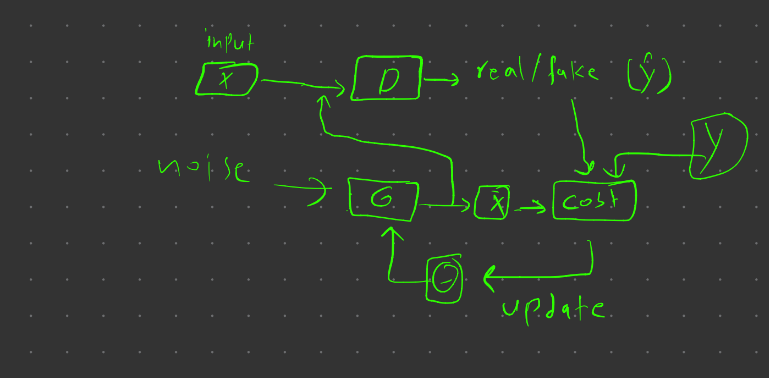 input
X
D
real/fake (ŷ)
Y
noise
G
X
cost
θ
update